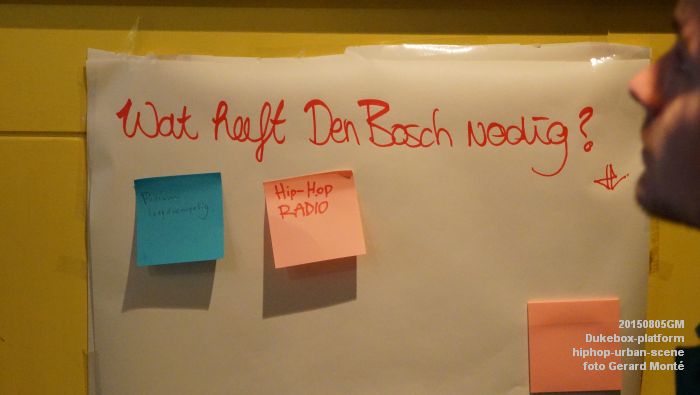 Wat heeft Den Bosch nodig?
Podium
laagdrempelig.
Hip-Hop
RADIO
20150805GM
Dukebox-platform
hiphop-urban-scene
foto Gerard Monté